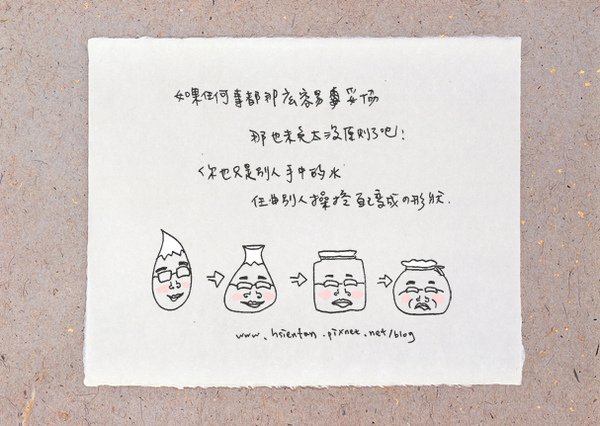 如果任何事都那広容易妥協
那也未免太沒原則了吧!
你也只是別人手中的水
任由別人操控自己變成の形狀.
www.hsientan.pixnet.net/blog